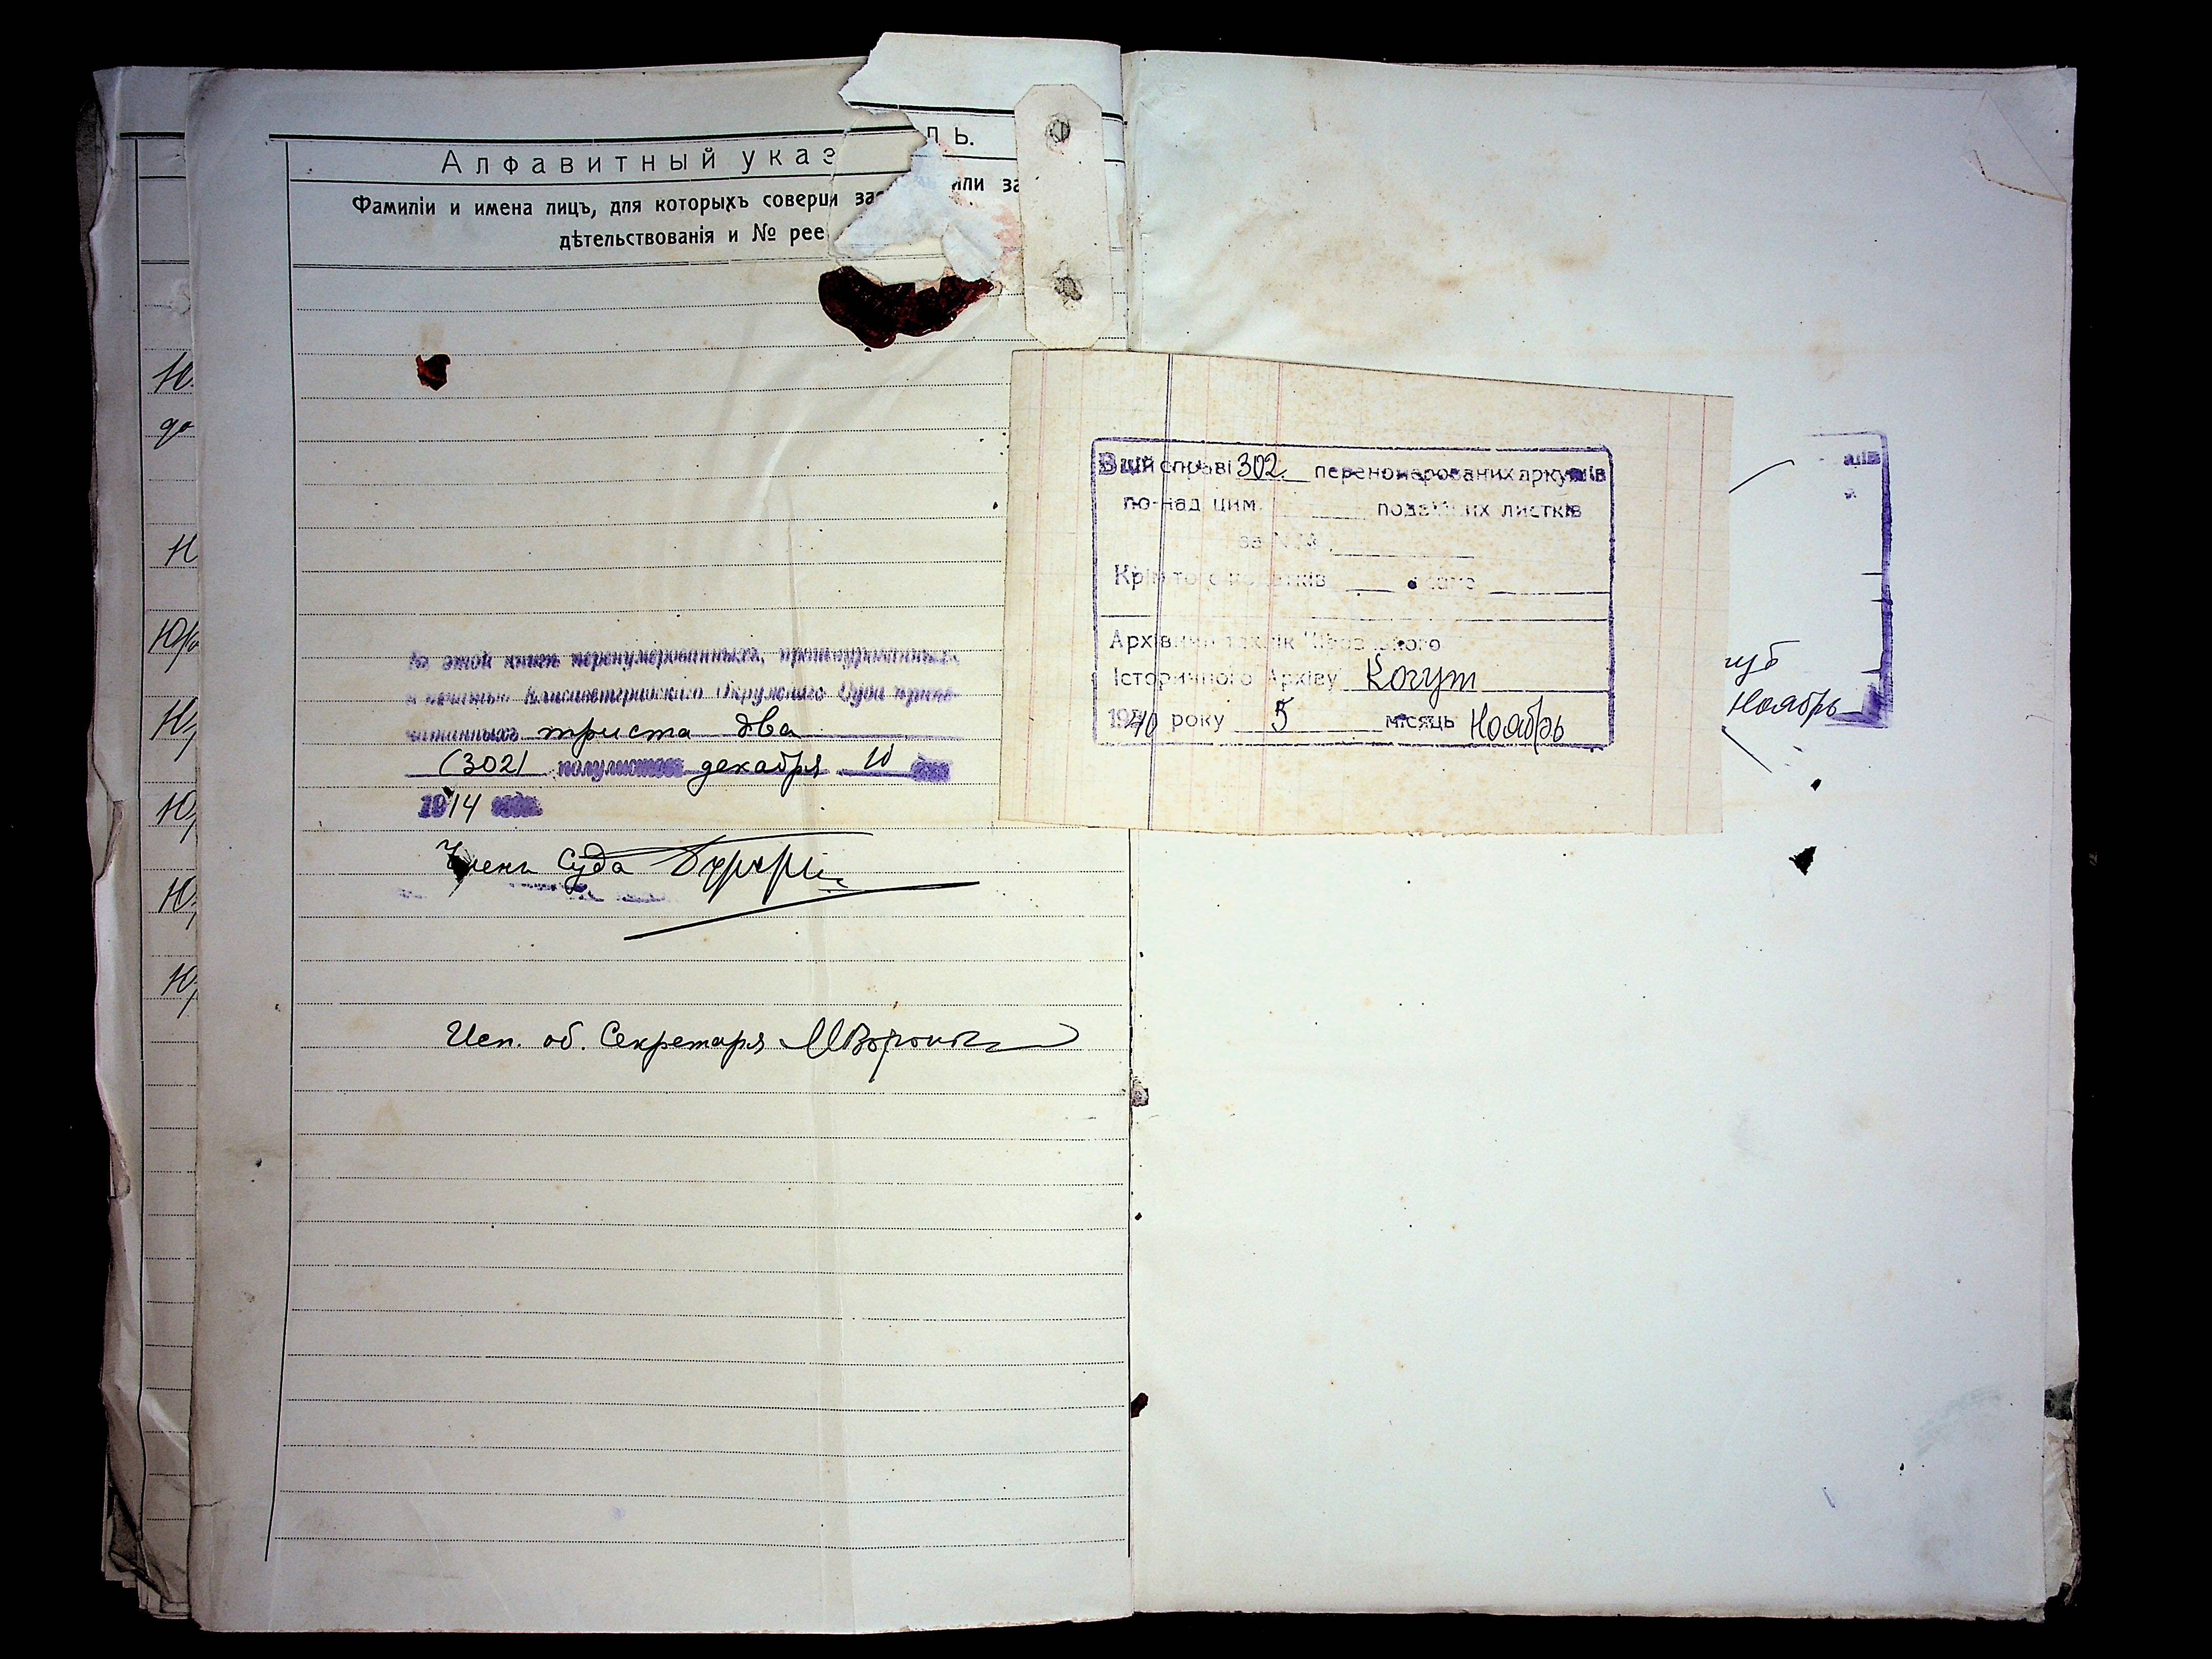 Алфавитный указ
ль.
Фамилiи и имена лицъ, для которыхъ соверш зас или за
дѣтельствованiя и № рее
Ю
до
Ю
Ю
Ю
Ю
Ю
Въ этой книгѣ перенумерованныхъ, прошнурованныхъ
и печатью Елисаветградскаго Окружнаго Суда припе-
чатанныхъ триста два
(302) полулистовъ декабря 10 дня
1914 года
Членъ Суда
Исп. об. Секретаря
В цій справі 302 переномерованих аркушів
по-над цим подвійних листків
за №№
Крім того додатків а саме
Архівний технік
Історичного Архіву Когут
1940 року 5 місяць Ноябрь
Ноябрь